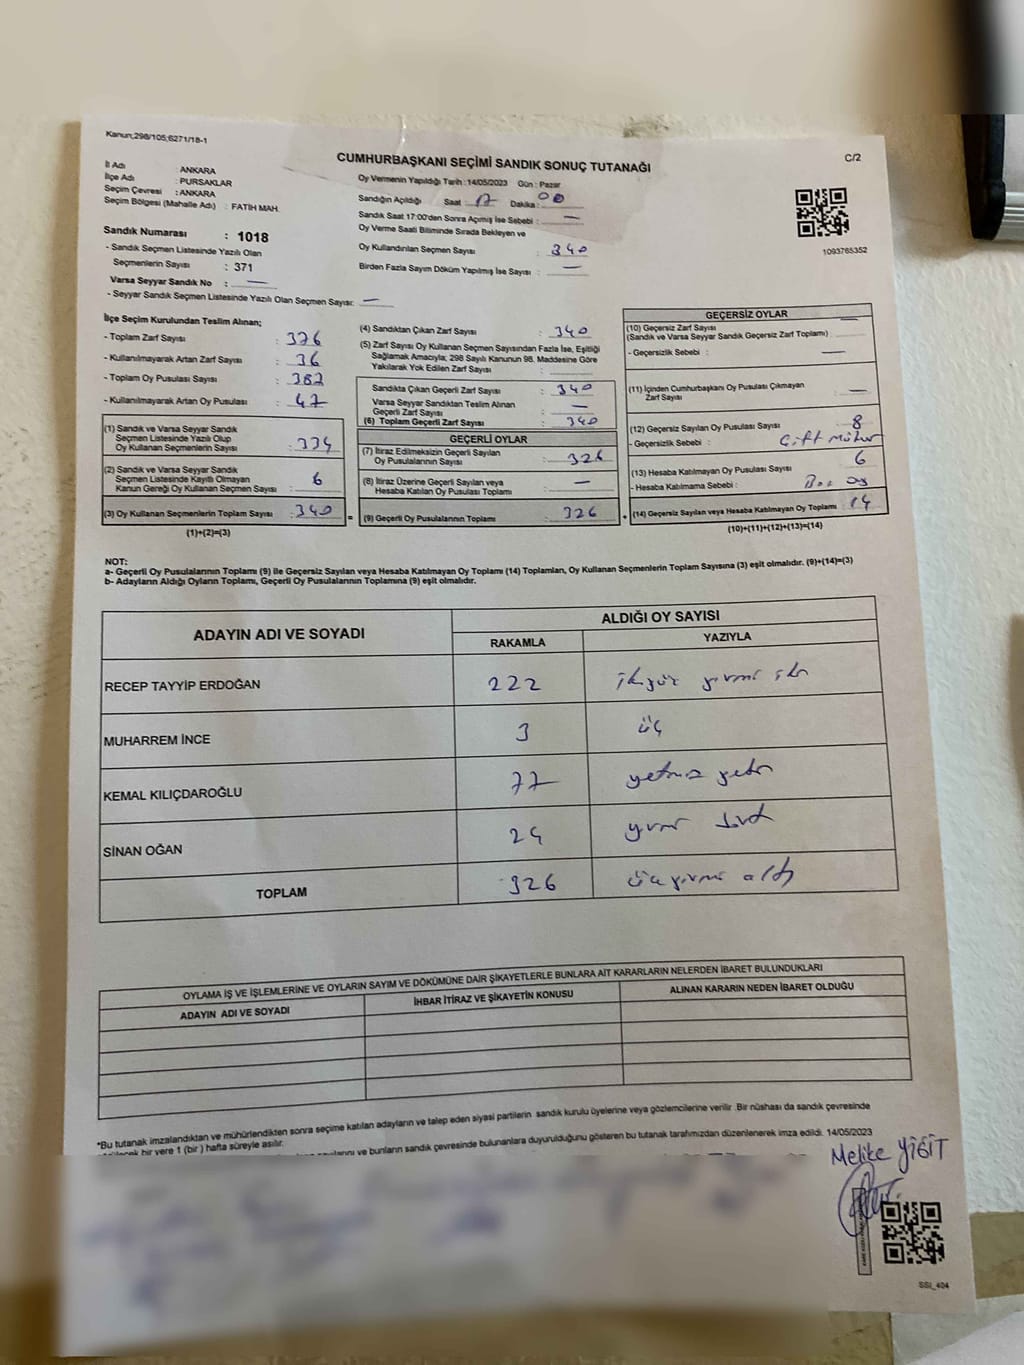 Kanun;298/105;6271/18-1
CUMHURBAŞKANI SEÇİMİ SANDIK SONUÇ TUTANAĞI
C/2
İl Adı : ANKARA
İlçe Adı : PURSAKLAR
Seçim Çevresi : ANKARA
Seçim Bölgesi (Mahalle Adı) : FATİH MAH.
Sandık Numarası : 1018
- Sandık Seçmen Listesinde Yazılı Olan
Seçmenlerin Sayısı : 371
Varsa Seyyar Sandık No : —
- Seyyar Sandık Seçmen Listesinde Yazılı Olan Seçmen Sayısı: —
Oy Vermenin Yapıldığı Tarih :14/05/2023 Gün : Pazar
Sandığın Açıldığı Saat : 17 Dakika : 00
Sandık Saat 17:00'den Sonra Açımış İse Sebebi : —
Oy Verme Saati Bitiminde Sırada Bekleyen ve
Oy Kullandırılan Seçmen Sayısı : 340
Birden Fazla Sayım Döküm Yapılmış İse Sayısı : —
1093765352
İlçe Seçim Kurulundan Teslim Alınan;
- Toplam Zarf Sayısı : 376
- Kullanılmayarak Artan Zarf Sayısı : 36
- Toplam Oy Pusulası Sayısı : 387
- Kullanılmayarak Artan Oy Pusulası : 47
(1) Sandık ve Varsa Seyyar Sandık
Seçmen Listesinde Yazılı Olup
Oy Kullanan Seçmenlerin Sayısı : 334
(2) Sandık ve Varsa Seyyar Sandık
Seçmen Listesinde Kayıtlı Olmayan
Kanun Gereği Oy Kullanan Seçmen Sayısı : 6
(3) Oy Kullanan Seçmenlerin Toplam Sayısı : 340
(1)+(2)=(3)
(4) Sandıktan Çıkan Zarf Sayısı : 340
(5) Zarf Sayısı Oy Kullanan Seçmen Sayısından Fazla İse, Eşitliği
Sağlamak Amacıyla; 298 Sayılı Kanunun 98. Maddesine Göre
Yakılarak Yok Edilen Zarf Sayısı :
Sandıkta Çıkan Geçerli Zarf Sayısı : 340
Varsa Seyyar Sandıktan Teslim Alınan
Geçerli Zarf Sayısı : —
(6) Toplam Geçerli Zarf Sayısı : 340
GEÇERLİ OYLAR
(7) İtiraz Edilmeksizin Geçerli Sayılan
Oy Pusulalarının Sayısı : 326
(8) İtiraz Üzerine Geçerli Sayılan veya
Hesaba Katılan Oy Pusulası Toplamı : —
= (9) Geçerli Oy Pusulalarının Toplamı : 326 +
GEÇERSİZ OYLAR
(10) Geçersiz Zarf Sayısı
(Sandık ve Varsa Seyyar Sandık Geçersiz Zarf Toplamı) : —
- Geçersizlik Sebebi : —
(11) İçinden Cumhurbaşkanı Oy Pusulası Çıkmayan
Zarf Sayısı : —
(12) Geçersiz Sayılan Oy Pusulası Sayısı : 8
- Geçersizlik Sebebi : Çift Mühür
(13) Hesaba Katılmayan Oy Pusulası Sayısı : 6
- Hesaba Katılmama Sebebi : Boş oy
(14) Geçersiz Sayılan veya Hesaba Katılmayan Oy Toplamı : 14
(10)+(11)+(12)+(13)=(14)
NOT:
a- Geçerli Oy Pusulalarının Toplamı (9) ile Geçersiz Sayılan veya Hesaba Katılmayan Oy Toplamı (14) Toplamları, Oy Kullanan Seçmenlerin Toplam Sayısına (3) eşit olmalıdır. (9)+(14)=(3)
b- Adayların Aldığı Oyların Toplamı, Geçerli Oy Pusulalarının Toplamına (9) eşit olmalıdır.
ADAYIN ADI VE SOYADI ALDIĞI OY SAYISI
RAKAMLA YAZIYLA
RECEP TAYYİP ERDOĞAN 222 ikiyüz yirmi iki
MUHARREM İNCE 3 üç
KEMAL KILIÇDAROĞLU 77 yetmiş yedi
SİNAN OĞAN 24 yirmi dört
TOPLAM 326 üçyüzyirmi altı
OYLAMA İŞ VE İŞLEMLERİNE VE OYLARIN SAYIM VE DÖKÜMÜNE DAİR ŞİKAYETLERLE BUNLARA AİT KARARLARIN NELERDEN İBARET BULUNDUKLARI
ADAYIN ADI VE SOYADI İHBAR İTİRAZ VE ŞİKAYETİN KONUSU ALINAN KARARIN NEDEN İBARET OLDUĞU
*Bu tutanak imzalandıktan ve mühürlendikten sonra seçime katılan adayların ve talep eden siyasi partilerin sandık kurulu üyelerine veya gözlemcilerine verilir .Bir nüshası da sandık çevresinde
bir yere 1 (bir ) hafta süreyle asılır.
ve bunların sandık çevresinde bulunanlara duyurulduğunu gösteren bu tutanak tarafımızdan düzenlenerek imza edildi. 14/05/2023
Melike YİĞİT
SSI_404